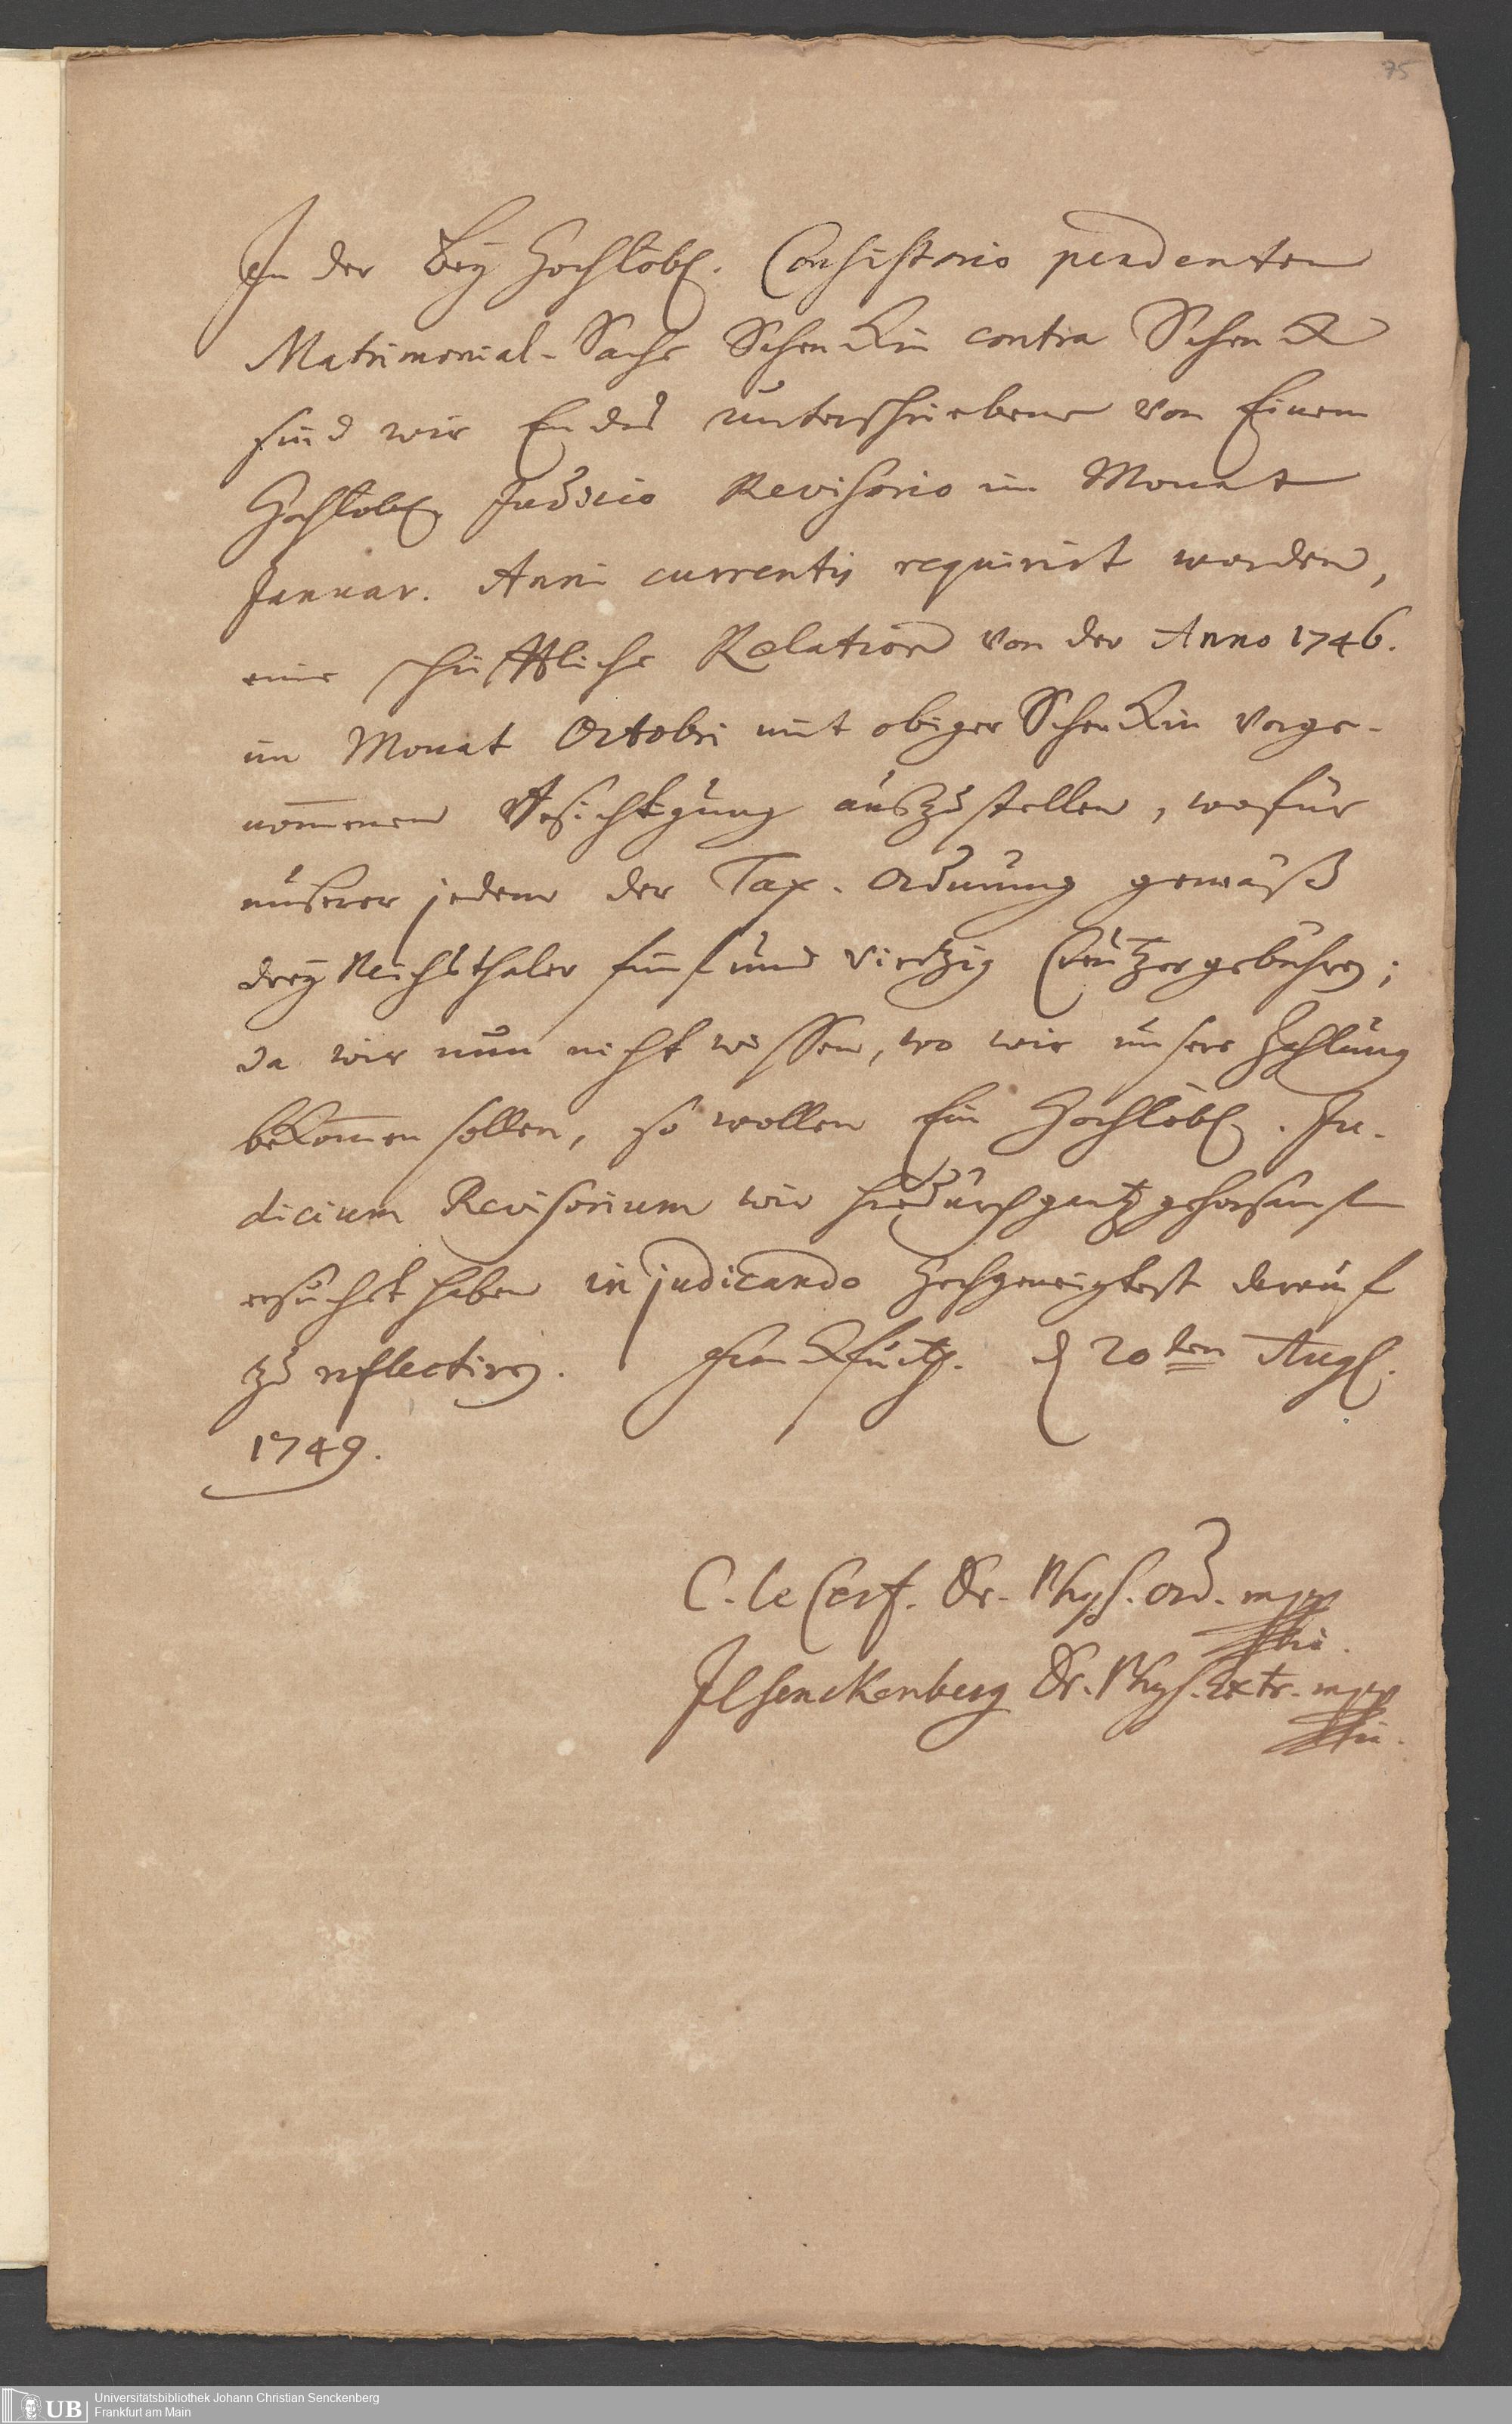 75
In der bey Hochlöbl. Consistorio pendenten
Matrimonial-Sache Schenckin contra Schenck
sind wir Endes unterschriebene von Einem
Hochlöbl. Judicio Revisorio im Monat
Januar. Anni currentis requirirt worden,
eine schrifftliche Relation von der Anno 1746.
im Monat Octobri mit obiger Schenckin vorge-
nom̅enen Besichtigung auszustellen, wofür
unserer jedem der Tax-Ordnung gemäß
drey Reichsthaler fünf und viertzig Creutzer gebühren;
da wir nun nicht wissen, wo wir unsere Zahlung
bekom̅en sollen, so wollen Ein Hochlöbl. Ju-
dicium Revisorium wir hiedurch gantz gehorsamst
ersucht haben in judicando hochgeneigtest darauf
zu reflectiren. Franckfurth. d 20ten Aug.
1749.
C. le Cerf. Dr. Phys. ord. mpp
JCSenckenberg Dr. Phys. Extr. mpp
UB Universitätsbibliothek Johann Christian Senckenberg
Frankfurt am Main